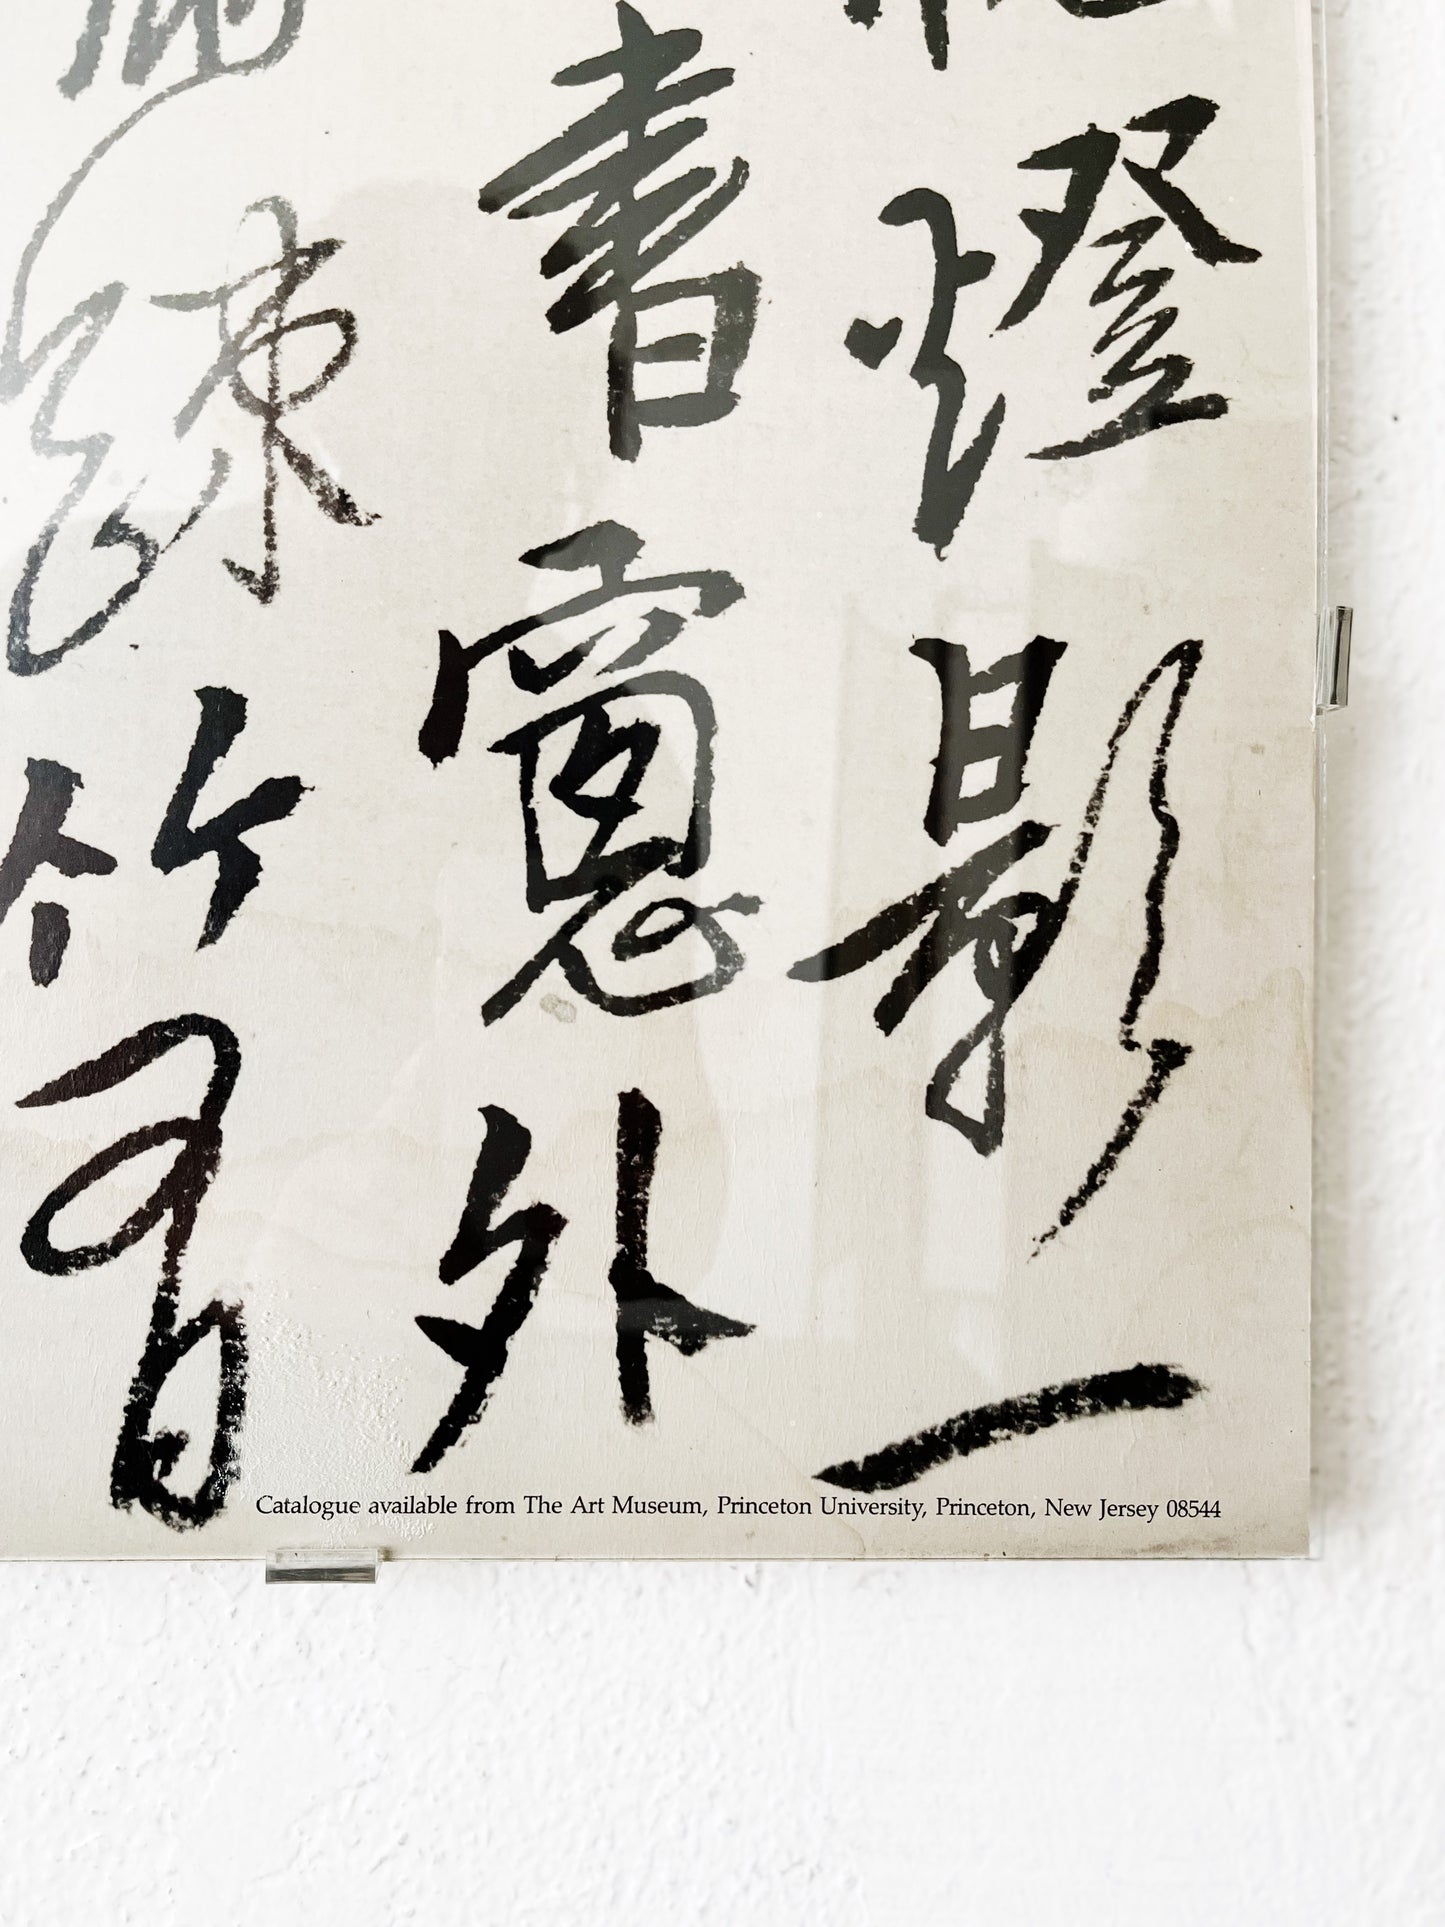 燈影一
書窻外
疎竹有
Catalogue available from The Art Museum, Princeton University, Princeton, New Jersey 08544